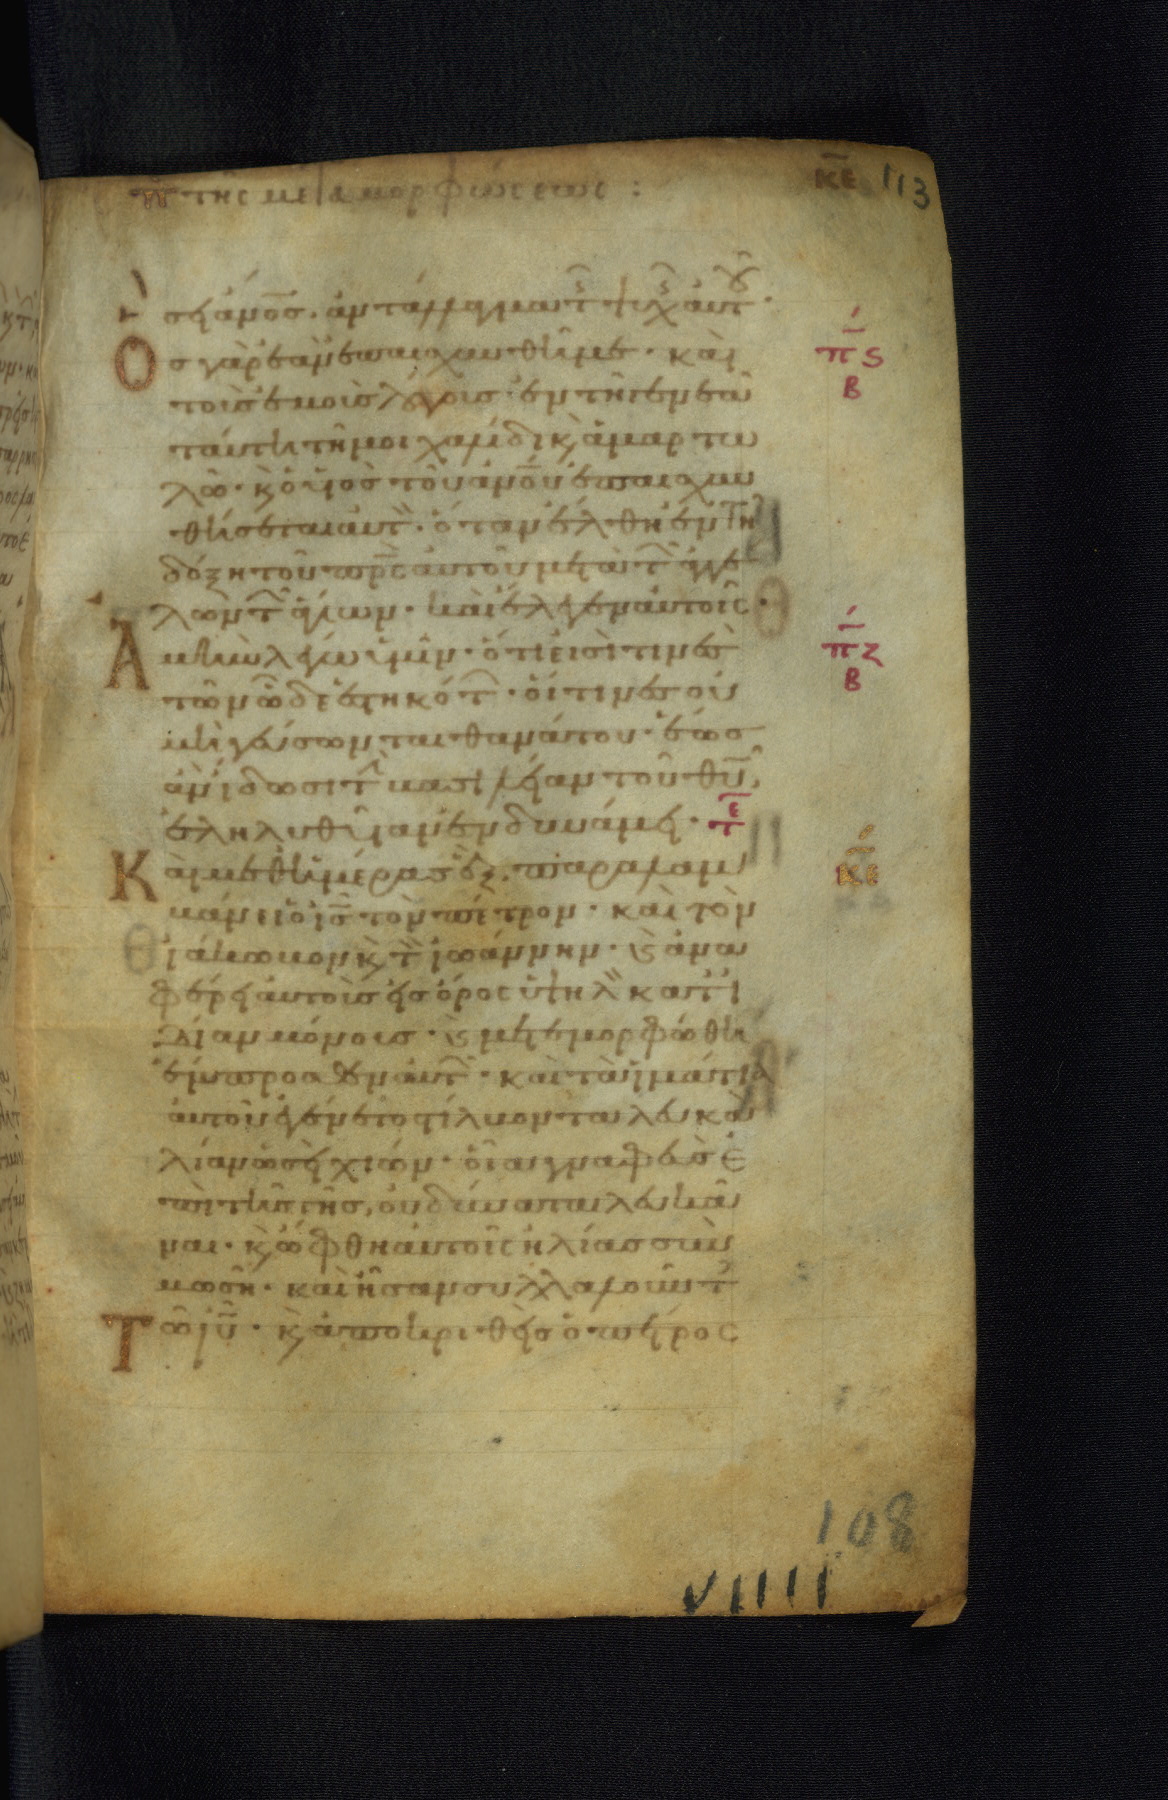 π τῆς μεταμορφώσεως : κε 113
σει ἄνος. ἀντάλλαγμα τ ψυχ αὐτ.
Ος γὰρ ἐὰν ἐπαισχυνθῆ με. καὶ
τοὺς ἐμοὺς λόγους ἐν τῆ γενεᾶ
ταύτη τῆ μοιχαλίδι κ ἁμαρτω
λῶ. κ ὁ υἱὸς τοῦ ἀνου ἐπαισχυν
θήσεται αὐτ. ὅταν ἔλθη ἐν τῆ
δόξη τοῦ πρς αὐτοῦ μετὰ τ ἀγγέ
λων τ ἁγίων. καὶ ἔλεγεν αὐτοῖς.
Αμὴν λέγω ὑμῖν. ὅτι εἰσί τινες
τῶν ὧδε ἑστηκότ. οἵτινες οὐ
μὴ γεύσωνται θανάτου. ἕως
ἂν ἴδωσι τ βασιλείαν τοῦ θυ
ἐληλυθυῖαν ἐν δυνάμει. τε
Καὶ μεθ ἡμέρας ἓξ. παραλαμ
βάνει ὁ ις τὸν πέτρον. καὶ τὸν
ἰάκωβον κ τ ἰωάννην. κ ἀνα
φέρει αὐτοὺς εἰς ὄρος ὑψηλ κατ ἰ
δίαν μόνους. κ μετεμορφώθη
ἔμπροσθεν αὐτ. καὶ τὰ ἱμάτια
αὐτοῦ ἐγένετο στίλβοντα λευκὰ
λίαν ὡσεὶ χιών. οἷα γναφεὺς ἐ
πὶ τῆς γῆς, οὐ δύναται λευκᾶ
ναι. κ ὤφθη αὐτοῖς ἠλίας σὺν
μωσῆ. καὶ ἦσαν συλλαλοῦντ
Τῶ ιυ. κ ἀποκριθεὶς ὁ πέτρος
πς
β
πζ
β
κε
108